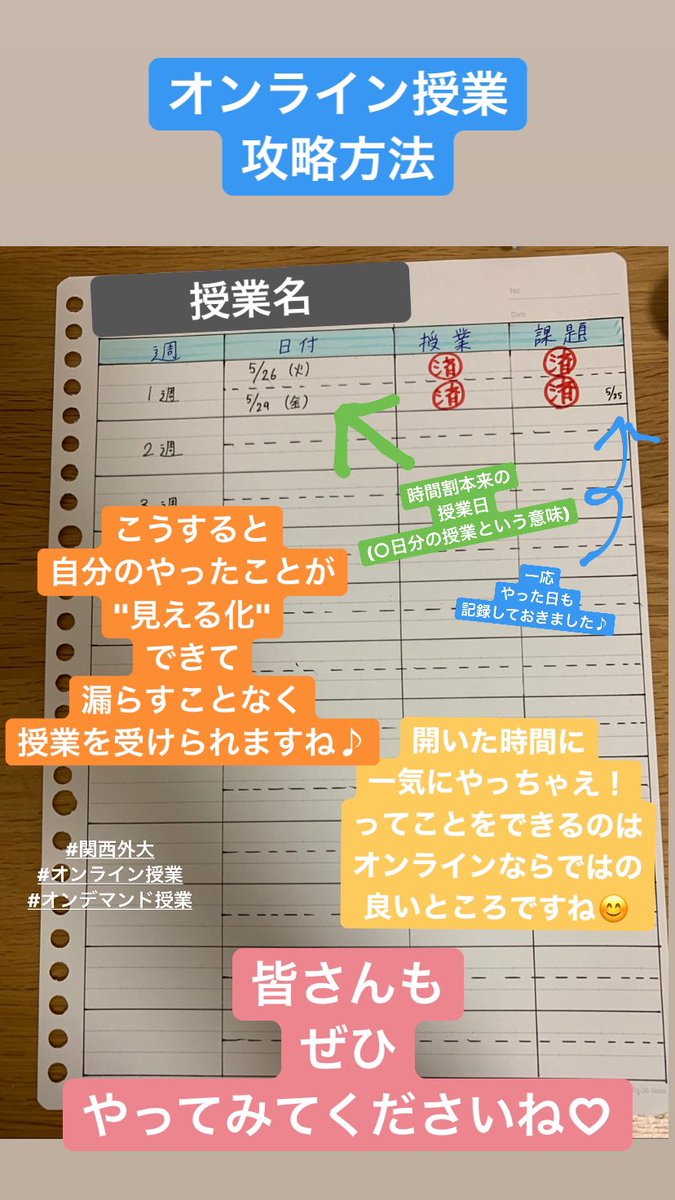 オンライン授業
攻略方法
授業名
No.
Date
週 日付 授業 課題
1週 5/26 (火) 済 済
5/29 (金) 済 済 5/25
2週
3週
時間割本来の
授業日
(〇日分の授業という意味)
こうすると
自分のやったことが
"見える化"
できて
漏らすことなく
授業を受けられますね♪
一応
やった日も
記録しておきました♪
開いた時間に
一気にやっちゃえ!
ってことをできるのは
オンラインならではの
良いところですね😊
#関西外大
#オンライン授業
#オンデマンド授業
皆さんも
ぜひ
やってみてくださいね♡